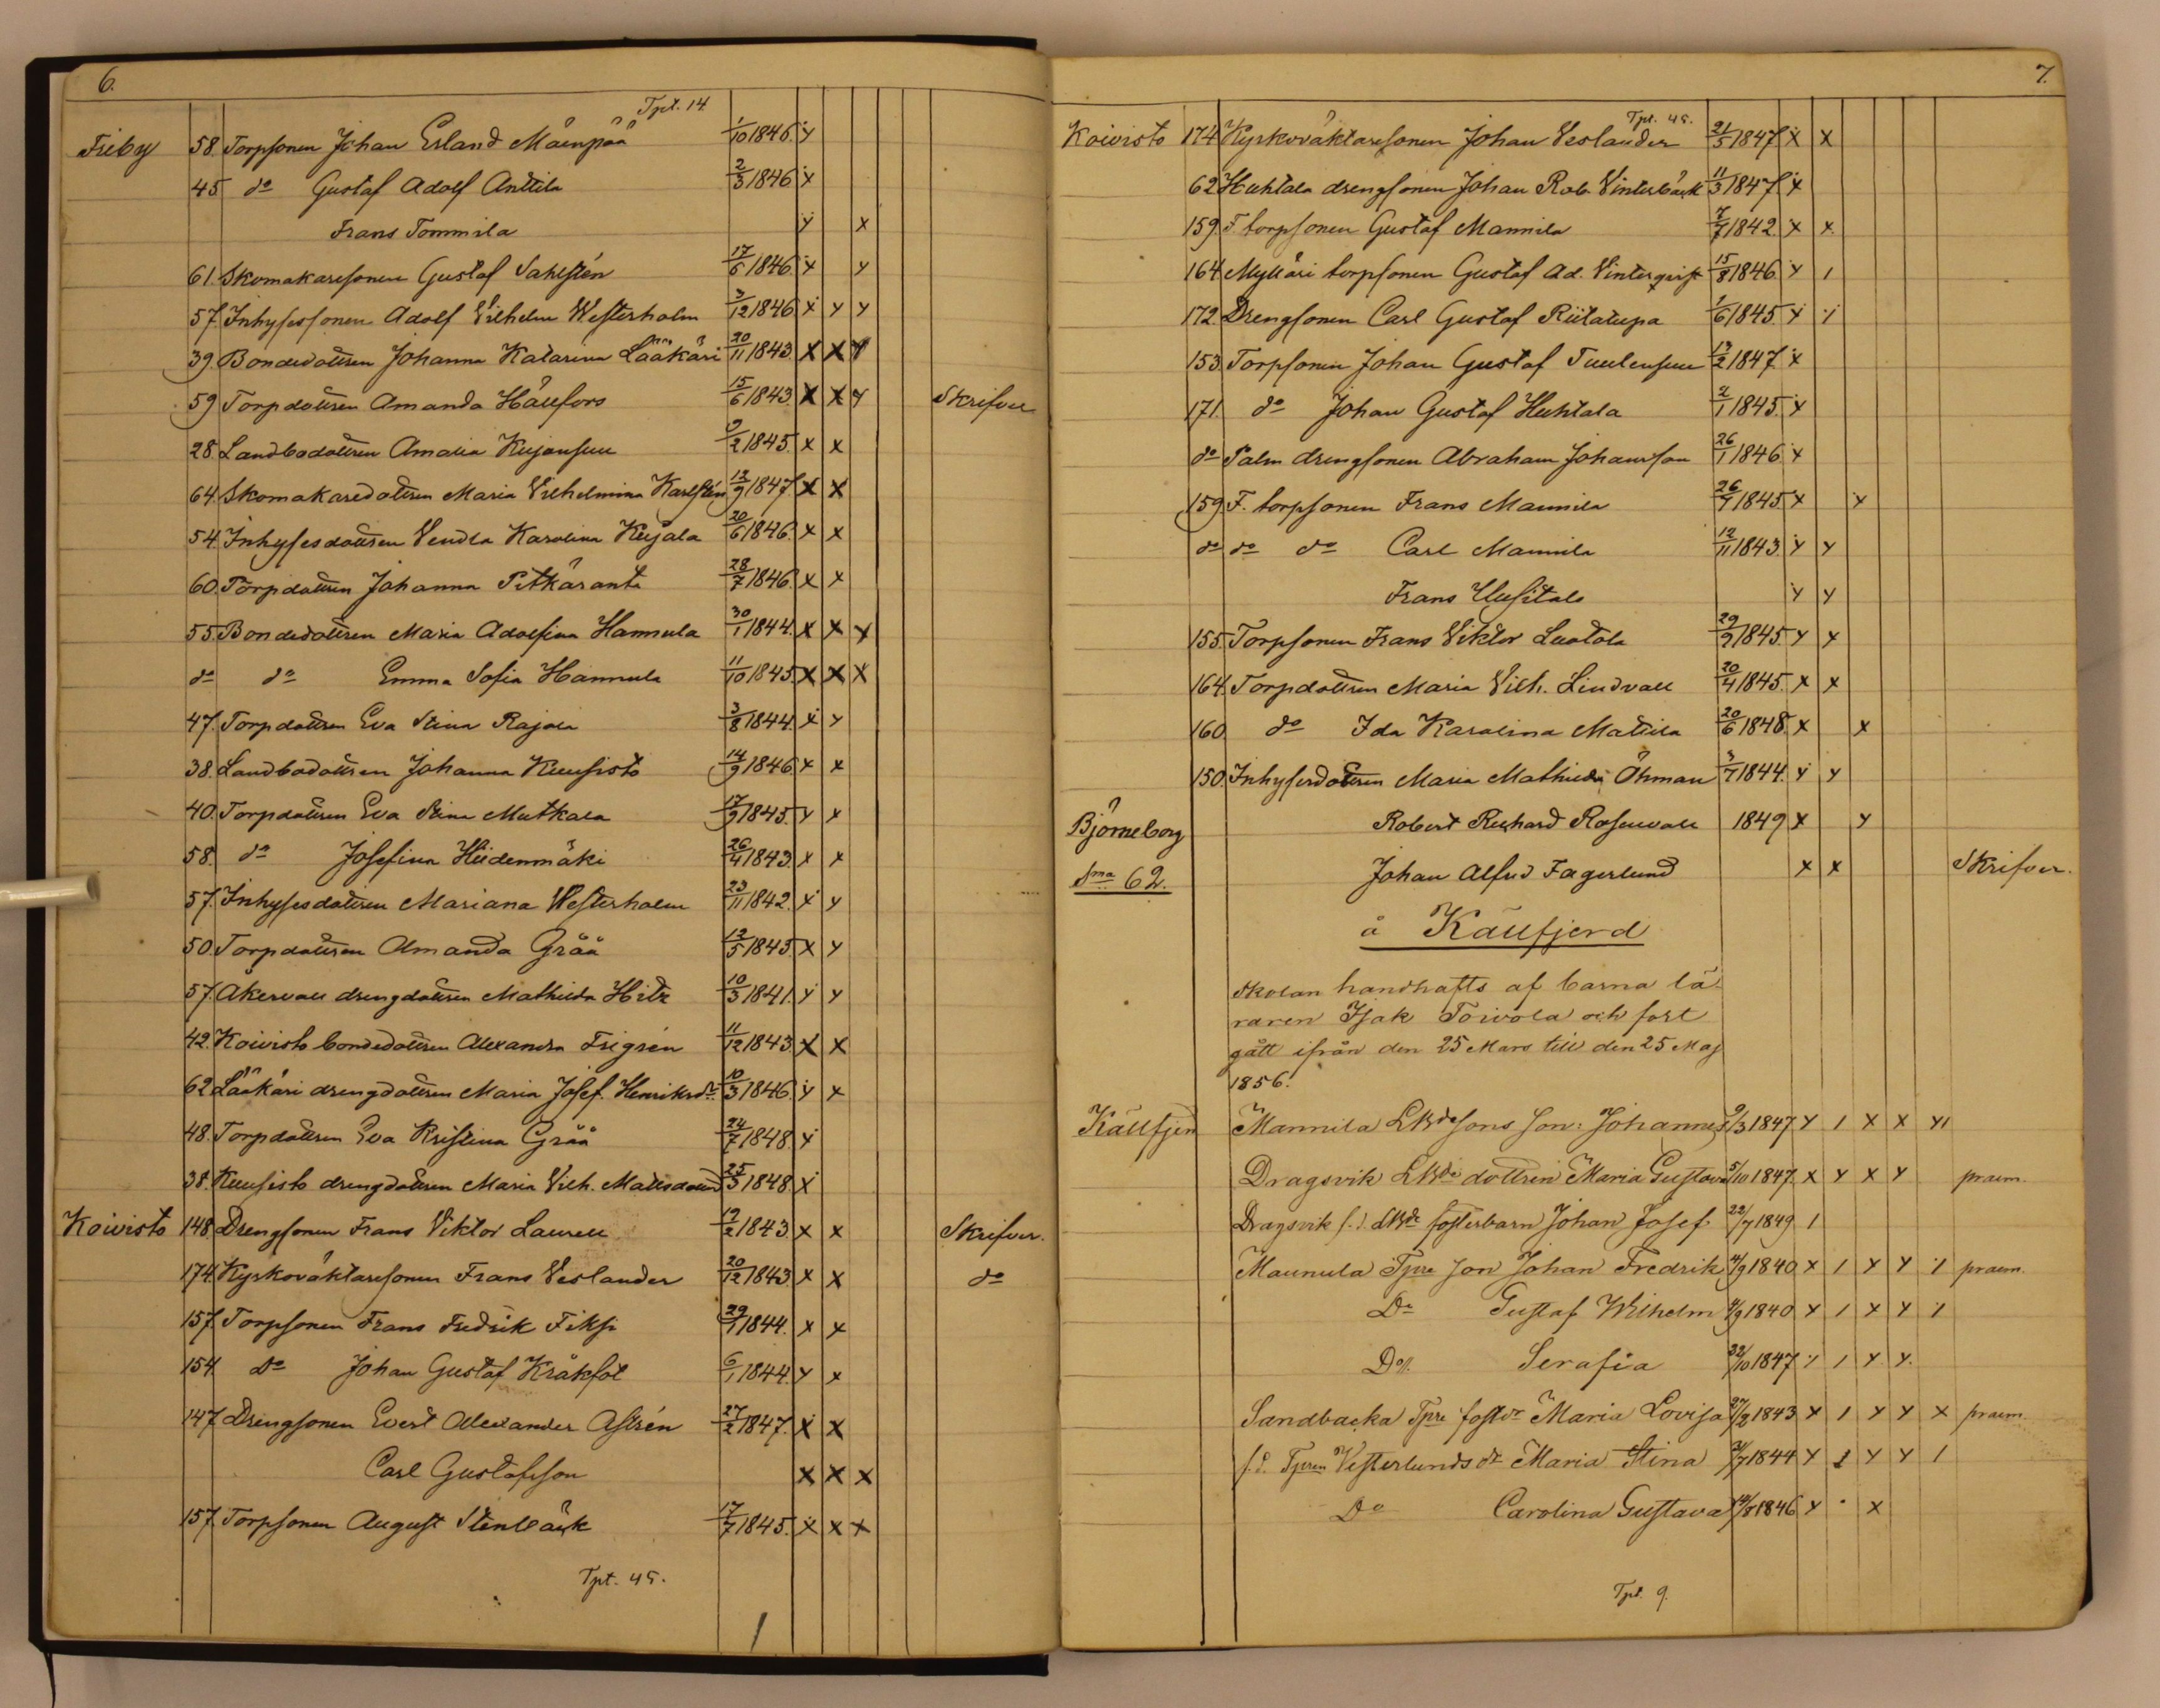 6.
Tpt. 14
Friby 58. Torpsonen Johan Erland Mäenpää 1/10 1846. x
45 do Gustaf Adolf Anttila 2/3 1846 x
Frans Tommila x x
61. Skomakaresonen Gustaf Sahlstén 17/6 1846. x x
57. Inhysessonen Adolf Vilhelm Westerholm 3/12 1846 x x x
39. Bondedottren Johanna Katarina Lääkäri 20/11 1843. x x x
59 Torpdottren Amanda Hällfors 15/6 1843. x x x Skrifver
28. Landbodottren Amalia Kujansuu 9/2 1845. x x
64. Skomakaredottren Maria Vilhelmina Karlstén 12/9 1847 x x
54. Inhysesdottren Vendla Karolina Kujala 20/6 1846. x x
60. Torpdottren Johanna Pitkäranta 28/7 1846. x x
55. Bondedottren Maria Adolfina Hannula 30/1 1844. x x x
do do Emma Sofia Hannula 11/10 1845. x x x
47. Torpdottren Eva Stina Rajala 3/8 1844. x x
38. Landbodottren Johanna Kuusisto 14/9 1846 x x
40. Torpdottren Eva Stina Mutkala 17/9 1845. x x
58. do Josefina Hiidenmäki 26/4 1843. x x
57. Inhysesdottren Mariana Westerholm 23/11 1842. x x
50. Torpdottren Amanda Grää 12/5 1845. x x
57. Åkervall drengdottren Mathilda Hitz 10/3 1841. x x
42. Koivisto bondedottren Alexandra Frigrén 11/12 1843. x x
62 Lääkäri drengdottren Maria Josef. Henriksdr. 10/3 1846. x x
48. Torpdottren Eva Kristina Grää 24/7 1848. x
38. Kuusisto drengdottren Maria Vilh. Mattsdotter 25/3 1848. x
Koivisto 148. Drengsonen Frans Viktor Laurell 19/2 1843. x x Skrifver.
174. Kyrkoväktaresonen Frans Veslander 20/12 1843 x x do
157. Torpsonen Frans Fredrik Fiksi 29/1 1844. x x
154. do Johan Gustaf Kråkfot 6/1 1844. x x
147. Drengsonen Evert Alexander Astrén 27/2 1847. x x
Carl Gustafsson x x x
157. Torpsonen August Stenbäck 17/7 1845. x x x
Tpt. 45.
7.
Tpt. 45.
Koivisto 174. Kyrkoväktaresonen Johan Veslander 21/5 1847 x x
62. Huhtala drengsonen Johan Rob. Vinterbäck 11/3 1847 x
159. F. torpsonen Gustaf Mannila 7/7 1842. x x
164. Mylläri torpsonen Gustaf Ad. Vinterqvist 15/8 1846. x 1
172. Drengsonen Carl Gustaf Riitatupa 1/6 1845. x x
153. Torpsonen Johan Gustaf Tuulensuu 12/2 1847. x
171. do Johan Gustaf Huhtala 2/1 1845. x
do Palm drengsonen Abraham Johansson 26/1 1846. x
159. F. torpsonen Frans Mannila 26/7 1845. x x
do do do Carl Mannila 12/11 1843. x x
Frans Uusitalo x x
155. Torpsonen Frans Viktor Luotola 29/9 1845. x x
164. Torpdottren Maria Vilh. Lindvall 20/4 1845. x x
160. do Ida Karolina Mattila 20/6 1848. x x
150. Inhysesdottren Maria Mathilda Öhman 3/7 1844. x x
Björneborg Robert Richard Rosenvall 1849 x x
Sma 62. Johan Alfred Fagerlund x x Skrifver.
å Källfjerd
Skolan handhafts af barna lä-
raren Isak Toivola och fort
gått ifrån den 25 Mars till den 25 Maj
1856.
Källfjerd Mannila LBde sons son: Johannes 9/3 1847 x 1 x x x1
Dragsvik LBde dottren Maria Gustava 5/10 1847. x x x x praem.
Dragsvik f.d. LBde fosterbarn Johan Josef 22/7 1849 1
Maunula Tpre son Johan Fredrik 4/9 1840 x 1 x x x praem.
Do Gustaf Wilhelm 4/9 1840 x 1 x x x
Do Serafia 22/10 1847 x 1 x x
Sandbacka Tpre fostdr Maria Lovisa 27/2 1843 x 1 x x x praem.
f.d. Tpren Vesterlunds dr Maria Stina 1844 x 1 x x 1
Do Carolina Gustava 14/8 1846 x x
Tpt. 9.